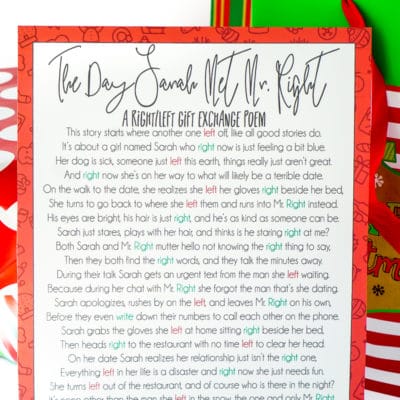 The Day Sarah Met Mr. Right
A Right/Left Gift Exchange Poem
This story starts where another one left off, like all good stories do.
It's about a girl named Sarah who right now is just feeling a bit blue.
Her dog is sick, someone just left this earth, things really just aren't great.
And right now she's on her way to what will likely be a terrible date.
On the walk to the date, she realizes she left her gloves right beside her bed,
She turns to go back to where she left them and runs into Mr. Right instead.
His eyes are bright, his hair is just right, and he's as kind as someone can be.
Sarah just stares, plays with her hair, and thinks is he staring right at me?
Both Sarah and Mr. Right mutter hello not knowing the right thing to say,
Then they both find the right words, and they talk the minutes away.
During their talk Sarah gets an urgent text from the man she left waiting.
Because during her chat with Mr. Right she forgot the man that's she dating.
Sarah apologizes, rushes by on the left, and leaves Mr. Right on his own,
Before they even write down their numbers to call each other on the phone.
Sarah grabs the gloves she left at home sitting right beside her bed,
Then heads right to the restaurant with no time left to clear her head.
On her date Sarah realizes her relationship just isn't the right one,
Everything left in her life is a disaster and right now she just needs fun.
She turns left out of the restaurant, and of course who is there in the right?
It's none other than the man she left in the snow, the one and only Mr. Right